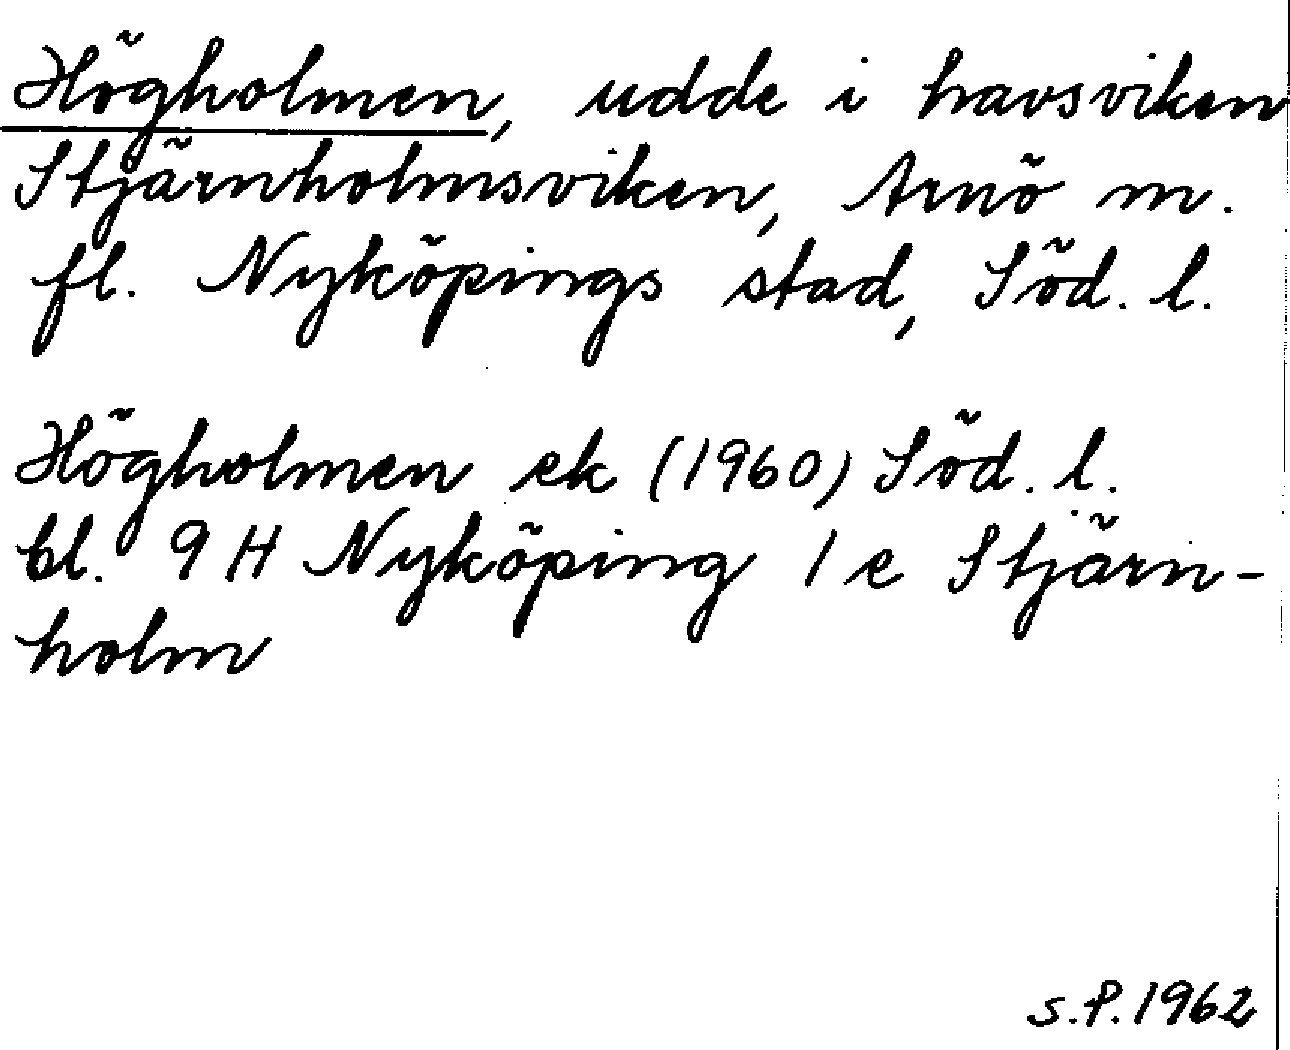 Högholmen, udde i havsviken
Stjärnholmsviken, Arnö m.
fl. Nyköpings stad, Söd. l.
Högholmen ek (1960) Söd. l.
bl. 9 H Nyköping 1 e Stjärn-
holm
S.P. 1962